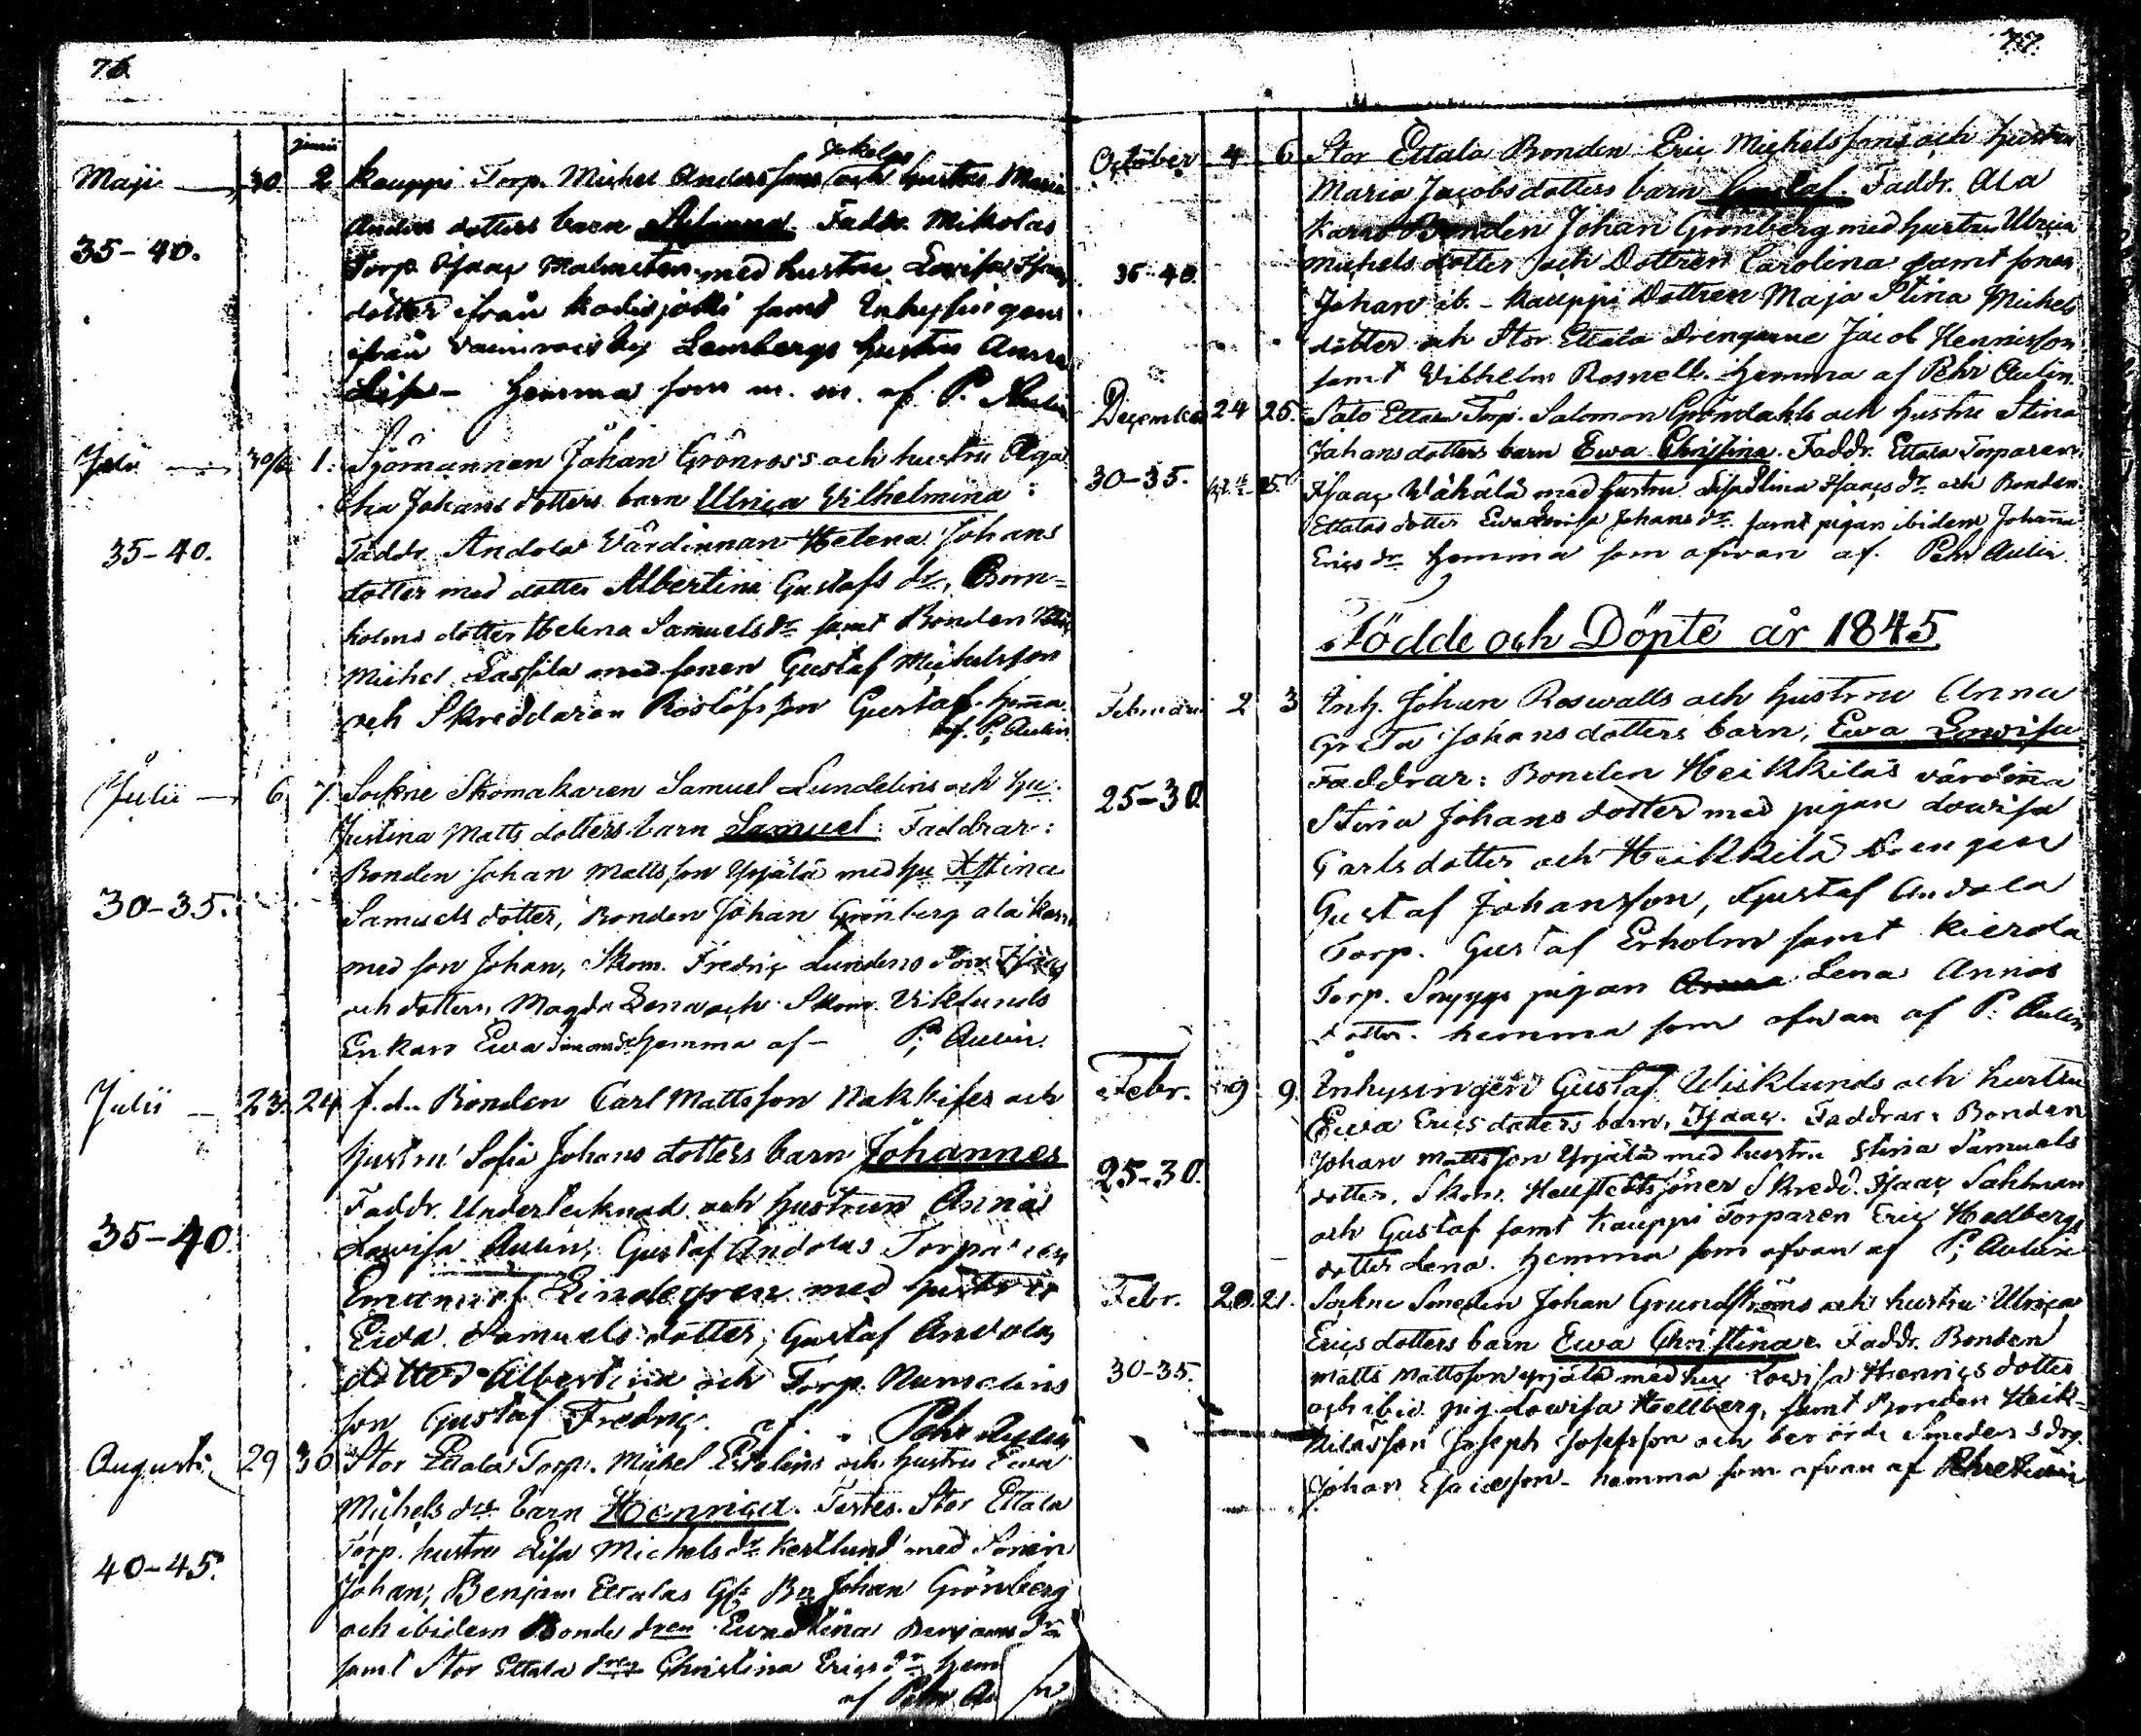 76.
Junii
Maji 30. 2 Kauppi Torp. Michel Anderssons Jakelas och hustru Maria
Anders dotters barn Faddr. Mikolas
35-40. Torp. Isaac Malmsten med hustru Lovisa Isaacs
dotter ifrån samt Inhysingens
ifrån Lembergs hustru Anna
Lisa - hemma som m. m. af P. Aulin
Julii 30/6 1. Sjömannen Johan Grönross och hustru Aga
tha Johans dotters barn Ulrica Vilhelmina :
35-40. Faddr. Andola Värdinnan Helena Johans
dotter med dotter Albertina Gustafs dr, Born=
holms dotter Helena Samuels dr samt Bonden
Michel Lassila med sonen Gustaf Michelsson
och Skreddaren Roslöfs son Gustaf. hem̄a.
af. P; Aulin
Julii 6 7. Sockne Skomakaren Samuel Lundelins och hu.
Justina Matts dotters barn Samuel : Faddrar :
Bonden Johan Mattsson Yrjälä med hu Stina
30-35. Samuels dotter, Bonden Johan Grönberg ala karr
med son Johan, Skom. Fredric Lundens Son Isaac
och dotters, Magda Lena och Skom. Viklunds
Enkan Ewa Simons dr hemma af - P; Aulin.
Julii 23. 24 f. d. Bonden Carl Mattsson Nakkifes och
hustru Sofia Johans dotters barn Johannes
Faddr. Undertecknad och hustrun Anna
35-40. Lowisa Aulin, Gustaf Andolas Torparen
Emanuel Lindegren med hustru
Ewa Samuels dotter, Gustaf Andolas
dotter Albertina och Torp. Numelins
son Gustaf Fredric. af. Pehr Aulin
Augusti 29 30 Stor Ettala Torp. Michel Estelins och hustru Ewa
Michels drs barn Henrica. Testes. Stor Ettala
40-45. Torp. hustru Lisa Michels dr Kerslund med Sonen
Johan, Benjam Ettalas Johan Grönberg
och ibidem Bonde dren Ewa Stina Benjams dr
samt Stor Ettala Christina Erics dr hem
af Pehr Aulin
77.
October 4 6 Stor Ettala Bonden Eric Michelssons och hustru
Maria Jacobs dotters barn Gustaf. Faddr. Ala
Karro Bonden Johan Grönberg med hustru Ulrica
36-40. Michels dotter och Dottren Carolina samt sonen
Johan ib. - Kauppi Dottren Maja Stina Michels
dotter och Stor Ettala Drengarne Jacob Hennisson
samt Vilhelm Rosnell. hemma af Pehr Aulin.
December 24 25. Sato Ettala Torp. Salomon Gröndahls och hustru Stina
Johans dotters barn Ewa Christina. Faddr. Ettala Torparen
30-35. Isaac Wähälä med hustru Isaacs dr och Bonden
Ettalas dotter Ewa Lovisa Johans dr. samt pigan ibidem Johan̄a
Erics dr hemma som ofwan af. Pehr Aulin.
Födde och Döpte år 1845.
Februarii 2 3 Inh. Johan Roswalls och hustru Anna
Greta Johans dotters barn, Ewa Lowisa
Faddrar : Bonden Heikkiläs värdin̄a
25-30 Stina Johans dotter med pigan Lowisa
Carls dotter och Heikkilä Drengen
Gustaf Johansson, Gustaf Andola
Torp. Gustaf Erholm samt Kierola
Torp. Snyggs pigan Anna Lena Annas
dotter. hemma som ofwan af P: Aulin
Febr. 9 9. Inhysingen Gustaf Wicklunds och hustru
Ewa Erics dotters barn, Isaac. Faddrar : Bonden
25-30. Johan Mattsson Yrjälä med hustru Stina Samuels
dotter, Skom. Hellstedts söner Skredd. Isaac Sahlman
och Gustaf samt Kauppi Torparen Eric Hedbergs
dotter Lena. hemma som ofvan af P; Aulin
Febr. 20. 21. Sockne Smeden Johan Grundströms och hustru Ulrica
Erics dotters barn Ewa Christina. Faddr. Bonden
30-35. Matts Mattsson Yrjälä med hu Lowisa Henrics dotter
och ibid. pig. Lowisa Hellberg, samt Bonden Heik=
kiläs son Joseph Josefsson och berörde Smedens drg.
Johan Esaiesson - hemma som ofvan af Pehr Aulin